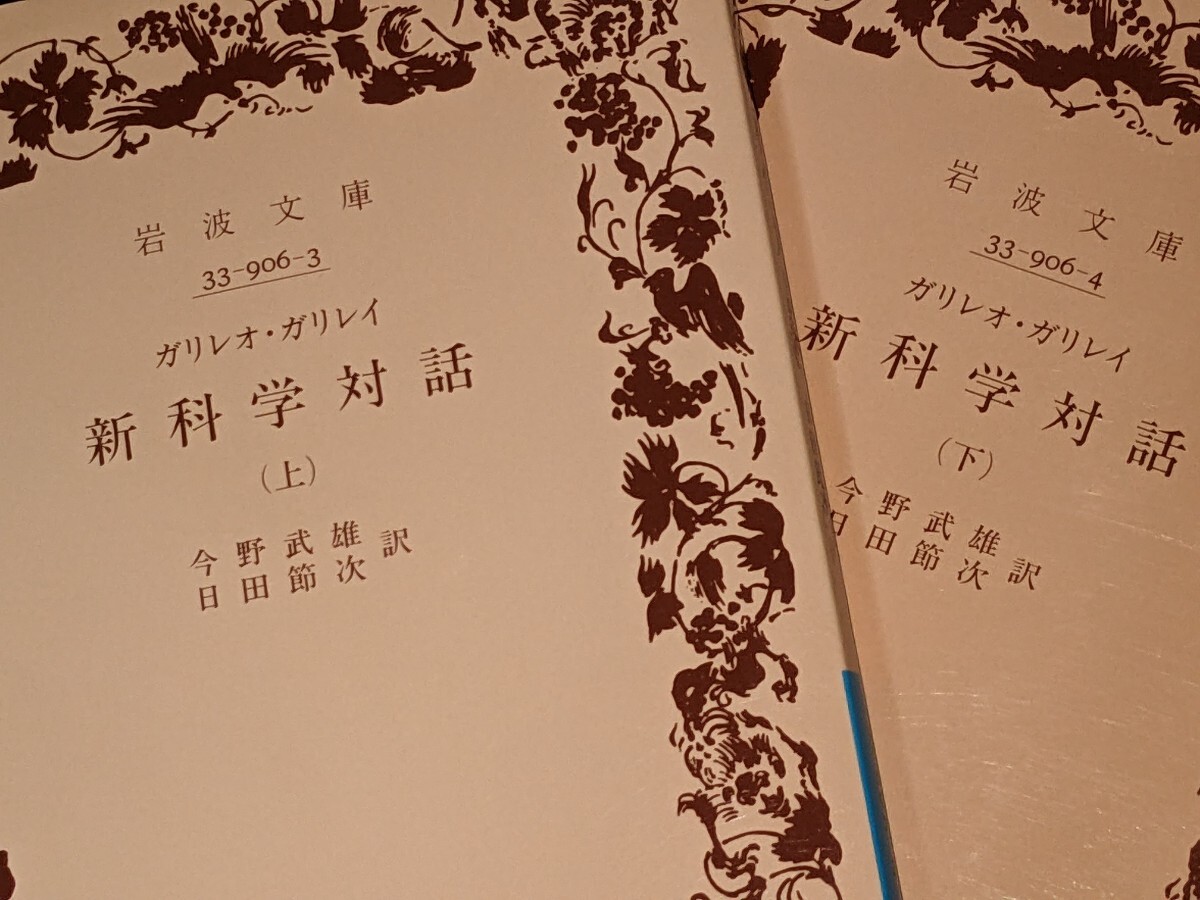 岩波文庫
33-906-3
ガリレオ・ガリレイ
新科学対話
(上)
今野武雄
日田節次 訳
岩波文庫
33-906-4
ガリレオ・ガリレイ
新科学対話
(下)
今野武雄
日田節次 訳